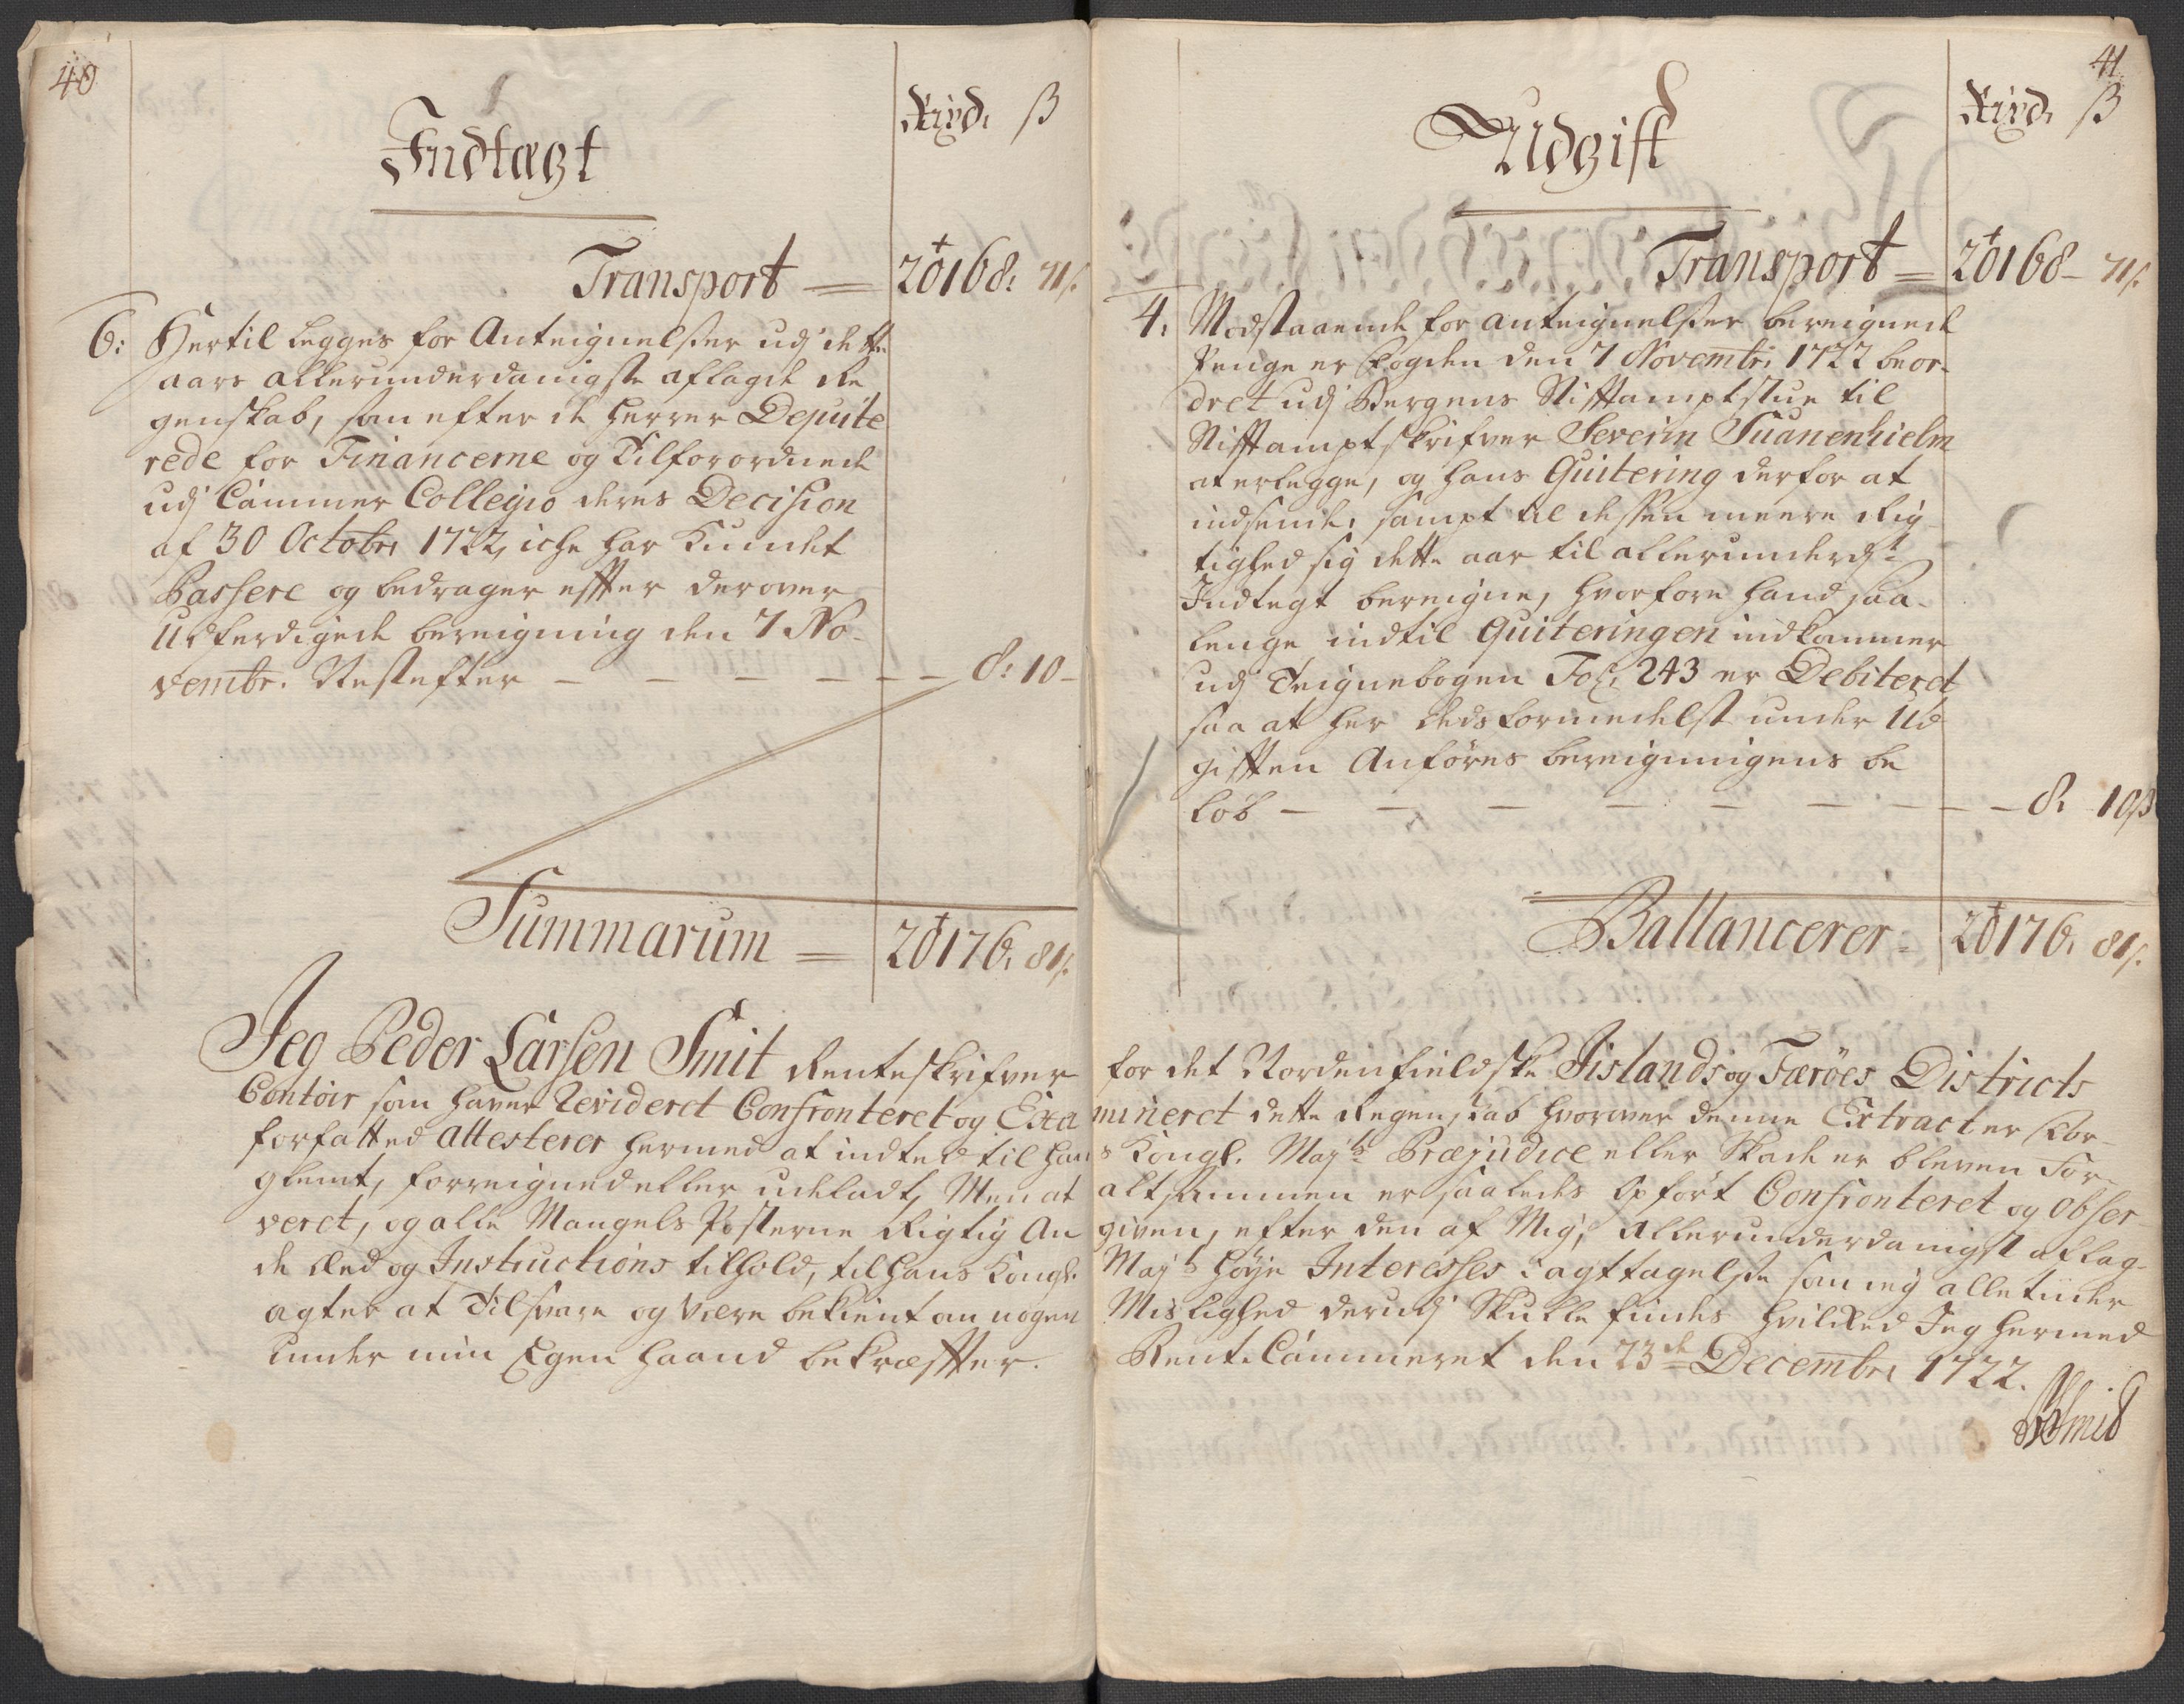 40
Indtægt
Rixd. ß
Transport = 20168: 71ß.
6: Hertil legges for Anteignelßer udj dette
aars allerunderdanigste aflagde Re
genskab, som efter de Herrer Depute
rede for Financerne og Tilforordnede
udj Cammer Collegio deres Decision
af 30 Octobr. 1722, iche har Kundet
Passere og bedrager effter derover
Udferdigede bereigning den 7 No-
vembr. Nestefter — — — — — — 8: 10-
Summarum = 20176. 81ß.
41
Udgift
Rixd. ß
Transport = 20168- 71ß.
4. Modstaaende for anteignelßer bereignede
Penge er Fogden den 7 Novembr. 1722 beor-
dret udj Bergens Stifftamptstue til
Stifftamptskrifver Severin Suanenhielm
at erlegge, og hans Quitering derfor at
indsende, sampt til dessen meere Rig-
tighed sig dette aar til allerunderdt.
Indtegt bereigne, hvorfore hand saa-
lenge indtil Quiteringen indkommer
udj Teignebogen Fol. 243 er Debiteret
saa at her dedsformedelst under Ud
gifften Anføres bereigningens be
løb — — — — — — — — 8. 10ß
Ballancerer = 20176. 81ß.
Jeg Peder Larsen Smit Renteskrifver for det Nordenfieldske Jislands og Færöes Districts
Contoir som haver Revideret Confronteret og Exa mineret dette Regenskab hvorover denne Extract er For-
forfatted attesterer hermed at indted til Hans Kongl. Mayts Præjudice eller Skade er bleven For-
glemt, forreigned eller udeladt, Men at alt sammen er saaledes Opført Confronteret og Obser-
veret, og alle Mangels Posterne Rigtig An given, efter den af Mig, Allerunderdanigst aflag-
de Æed og Instructions tilhold, til Hans Kongl. Mayts høye Interesses iagttagelße som ieg alletiider
agter at Tilsvare og være bekient om nogen Mislighed derudj Skulle findes hvilcked Jeg hermed
under min Egen Haand bekræffter. Rente Cammeret den 23de Decembr. 1722.
PLSmid